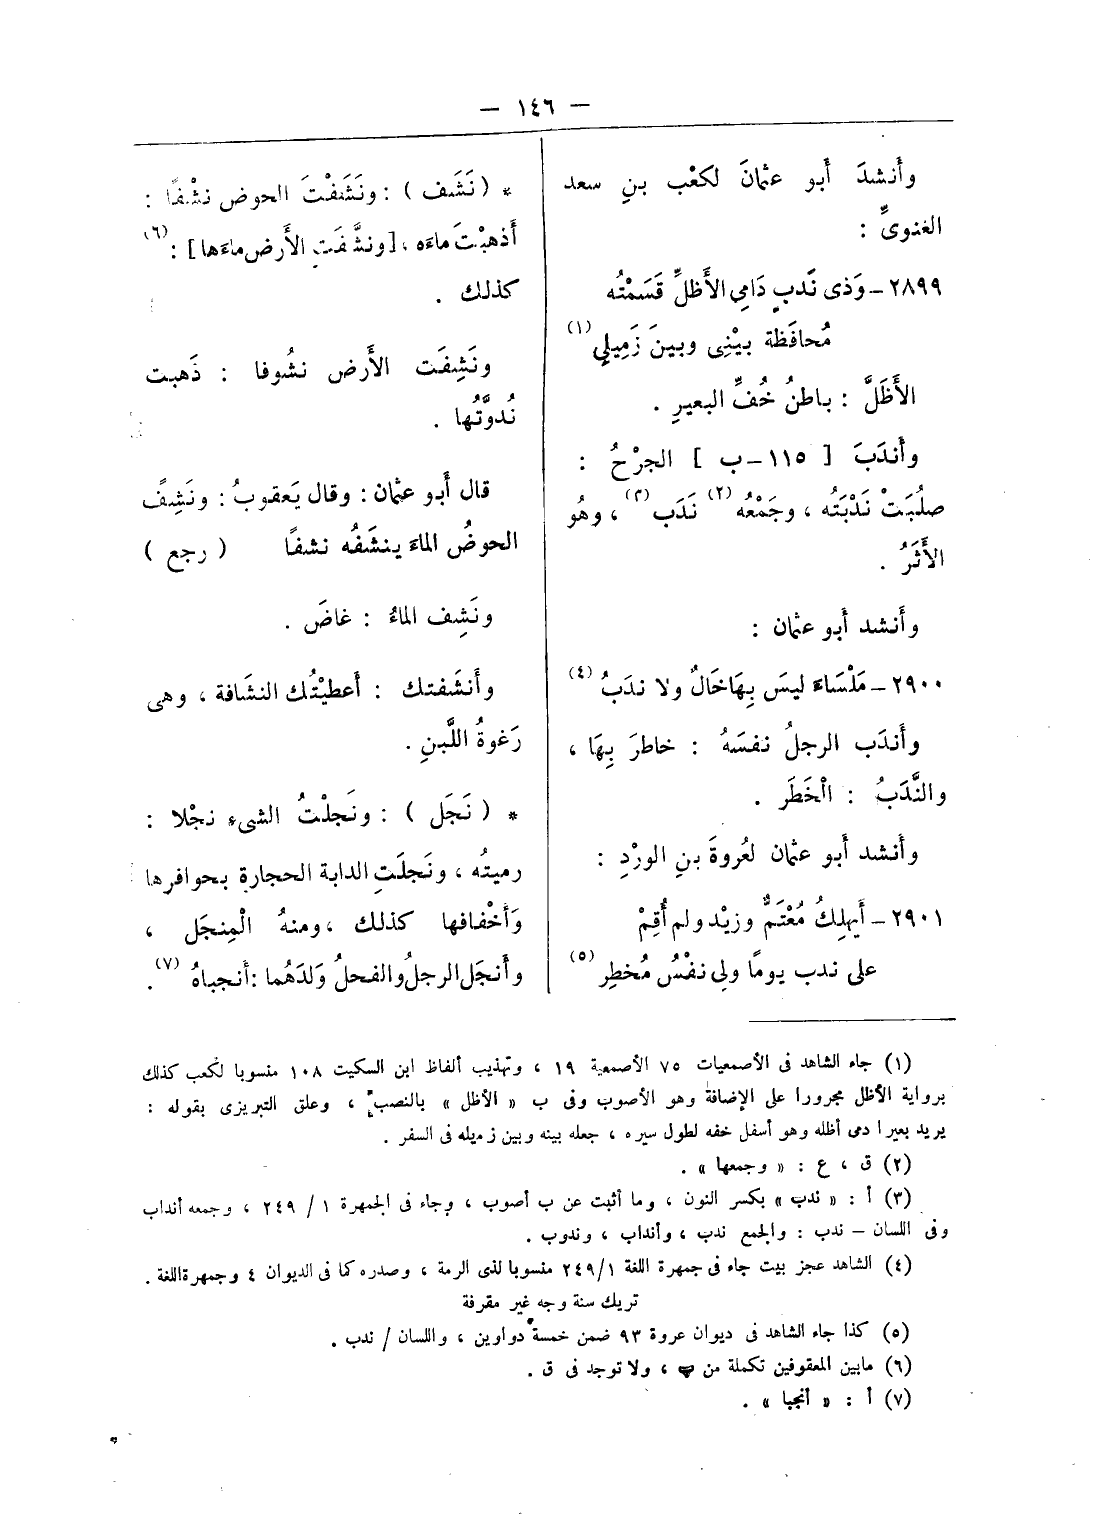 — ١٤٦ —
وأَنشدَ أَبو عثمانَ لكعْب بنِ سعد
الغنوىِّ :
٢٨٩٩ – وَذى نَدبٍ دَامِى الأَظلِّ قَسَمْتُه
مُحافَظة بيْنِى وبينَ زَمِيلِي (١)
الأَظَلَّ : باطنُ خُفِّ البعيرِ .
وأَندَبَ [ ١١٥ – ب ] الجرْحُ :
صلُبَتْ نَدْبَتُه ، وجَمْعُه (٢) نَدَب (٣) ، وهُو
الأَثَرُ .
وأَنشد أَبو عثمان :
٢٩٠٠ – مَلْسَاءَ ليسَ بِهَا خَالٌ ولا ندَبُ (٤)
وأَندَب الرجلُ نفسَهُ : خاطرَ بِهَا ،
والنَّدَبُ : الْخَطَر .
وأَنشد أَبو عثمان لعُروةَ بنِ الورْدِ :
٢٩٠١ – أَيهلِكُ مُعْتَمٌّ وزيْد ولم أُقِمْ
على ندب يومًا ولِى نفْسُ مُخطِر (٥)
* ( نَشَف ) : ونَشَفْتَ الحوض نشْفًا :
أَذهبْتَ ماءَه ، [ ونشَّفَتِ الأَرض ماءَها ] (٦) :
كذلك .
ونَشِفَت الأَرض نشُوفا : ذَهبت
نُدوَّتُها .
قال أَبو عثمان : وقال يَعقوبُ : ونَشِفَ
الحوضُ الماءَ ينشَفُه نشفًا ( رجع )
ونَشِف الماءُ : غاضَ .
وأَنشَفتك : أَعطيْتُك النشَافة ، وهى
رَغوةُ اللَّبنِ .
* ( نَجَل ) : ونَجلْتُ الشىءِ نجْلا :
رميتُه ، ونَجلَتِ الدابة الحجارة بحوافرها
وَأَخْفافها كذلك ، ومنهُ الْمِنجَل ،
وأَنجَل الرجلُ والفحلُ وَلدَهُما : أَنجباهُ (٧) .
(١) جاء الشاهد فى الأصمعيات ٧٥ الأصمعية ١٩ ، وتهذيب ألفاظ ابن السكيت ١٠٨ منسوبا لكعب كذلك
برواية الأظل مجرورا على الإضافة وهو الأصوب وفى ب « الأظل » بالنصب ، وعلق التبريزى بقوله :
يريد بعيرا دمى أظله وهو أسفل خفه لطول سيره ، جعله بينه وبين زميله فى السفر .
(٢) ق ، ع : « وجمعها » .
(٣) أ : « ندب » بكسر النون ، وما أثبت عن ب أصوب ، وجاء فى الجمهرة ١ / ٢٤٩ ، وجمعه أنداب
وفى اللسان – ندب : والجمع ندب ، وأنداب ، وندوب .
(٤) الشاهد عجز بيت جاء فى جمهرة اللغة ١/ ٢٤٩ منسوبا لذى الرمة ، وصدره كما فى الديوان ٤ وجمهرة اللغة .
تريك سنة وجه غير مقرفة
(٥) كذا جاء الشاهد فى ديوان عروة ٩٣ ضمن خمسة دواوين ، واللسان / ندب .
(٦) مابين المعقوفين تكملة من ب ، ولا توجد فى ق .
(٧) أ : « أنجبا » .